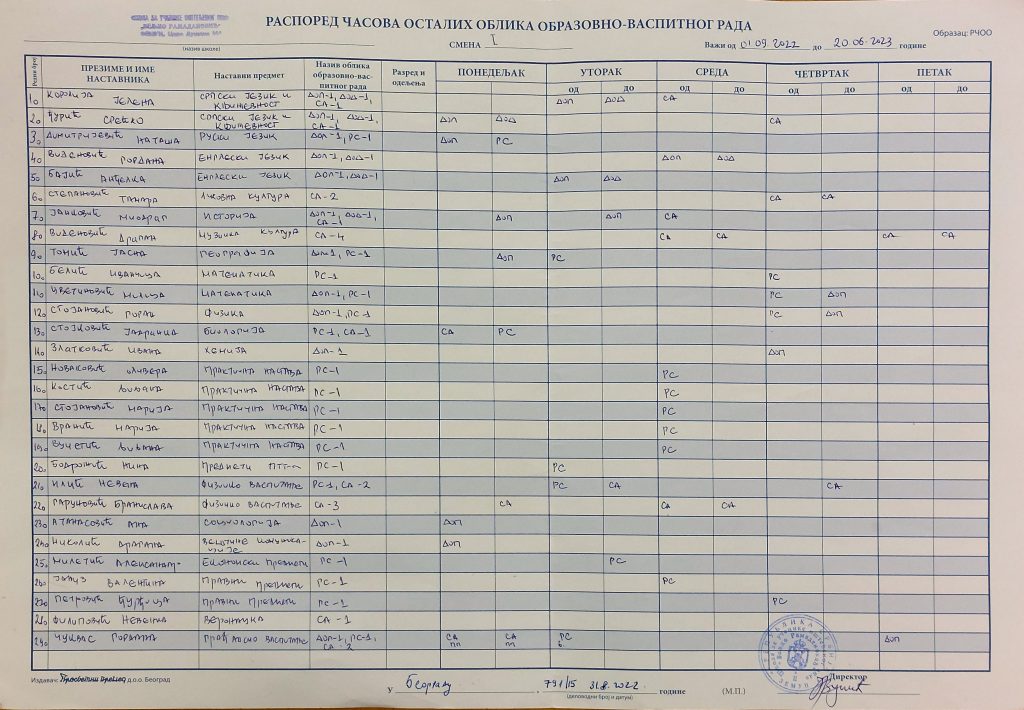 РАСПОРЕД ЧАСОВА ОСТАЛИХ ОБЛИКА ОБРАЗОВНО-ВАСПИТНОГ РАДА
Образац: РЧОО
(назив школе)
СМЕНА I
Важи од 01.09.2022 до 20.06.2023 године
Редни број ПРЕЗИМЕ И ИМЕ НАСТАВНИКА Наставни предмет Назив облика образовно-васпитног рада Разред и одељења ПОНЕДЕЉАК УТОРАК СРЕДА ЧЕТВРТАК ПЕТАК
од до од до од до од до
1. КОРОЛИЈА ЈЕЛЕНА СРПСКИ ЈЕЗИК И КЊИЖЕВНОСТ ДОП-1, ДОД-1, СА-1 ДОП ДОД СА
2. ЂУРИЋ СРЕЋКО СРПСКИ ЈЕЗИК И КЊИЖЕВНОСТ ДОП-1, ДОД-1, СА-1 ДОП ДОД СА
3. ДИМИТРИЈЕВИЋ НАТАША РУСКИ ЈЕЗИК ДОП-1, РС-1 ДОП РС
4. ВИДЕНОВИЋ ГОРДАНА ЕНГЛЕСКИ ЈЕЗИК ДОП-1, ДОД-1 ДОП ДОД
5. БАЈИЋ АНЂЕЛКА ЕНГЛЕСКИ ЈЕЗИК ДОП-1, ДОД-1 ДОП ДОД
6. СТЕПАНОВИЋ ТАМАРА ЛИКОВНА КУЛТУРА СА-2 СА СА
7. ЈАНКОВИЋ МИОДРАГ ИСТОРИЈА ДОП-1, ДОД-1, СА-1 ДОП ДОП СА
8. ВИДЕНОВИЋ ДРАГАН МУЗИЧКА КУЛТУРА СА-4 СА СА СА СА
9. ТОМИЋ ЈАСНА ГЕОГРАФИЈА ДОП-1, РС-1 ДОП РС
10. БЕЛИЋ ИВАНЧИЦА МАТЕМАТИКА РС-1 РС
11. ЦВЕТИНОВИЋ МИЛИЦА МАТЕМАТИКА ДОП-1, РС-1 РС ДОП
12. СТОЈАНОВИЋ ГОРАН ФИЗИКА ДОП-1, РС-1 РС ДОП
13. СТОЈКОВИЋ ЈАДРАНКА БИОЛОГИЈА РС-1, СА-1 СА РС
14. ЗЛАТКОВИЋ ИВАНА ХЕМИЈА ДОП-1 ДОП
15. НОВАКОВИЋ ОЛИВЕРА ПРАКТИЧНА НАСТАВА РС-1 РС
16. КОСТИЋ ЉИЉАНА ПРАКТИЧНА НАСТАВА РС-1 РС
17. СТОЈАНОВИЋ МАРИЈА ПРАКТИЧНА НАСТАВА РС-1 РС
18. ВРАНИЋ МАРИЈА ПРАКТИЧНА НАСТАВА РС-1 РС
19. ВУЧЕТИЋ ПРАКТИЧНА НАСТАВА РС-1 РС
20. НИНА ПРЕДМЕТИ РС-1 РС
21. ИЛИЋ НЕВЕНА ФИЗИЧКО ВАСПИТАЊЕ РС-1, СА-2 РС СА СА
22. ГАРУНОВИЋ БРАНИСЛАВА ФИЗИЧКО ВАСПИТАЊЕ СА-3 СА СА СА
23. АТАНАСОВИЋ АНА СОЦИОЛОГИЈА ДОП-1 ДОП
24. НИКОЛИЋ ДРАГАНА ВЕШТИНЕ КОМУНИКАЦИЈЕ ДОП-1 ДОП
25. МИЛЕТИЋ АЛЕКСАНДАР ЕКОНОМСКИ ПРЕДМЕТИ РС-1 РС
26. ВАЛЕНТИНА ПРАВНИ ПРЕДМЕТИ РС-1 РС
27. ПЕТРОВИЋ ЂУРЂИЦА ПРАВНИ ПРЕДМЕТИ РС-1 РС
28. ФИЛИПОВИЋ НЕВЕНКА ВЕРОНАУКА СА-1
29. ГОРДАНА ГРАЂАНСКО ВАСПИТАЊЕ ДОП-1, РС-1, СА-2 СА ПП СА ПП РС ДОП
Издавач: д.о.о. Београд
У Београду, 791/15 31.8.2022 године (М.П.) Директор
(деловодни број и датум)